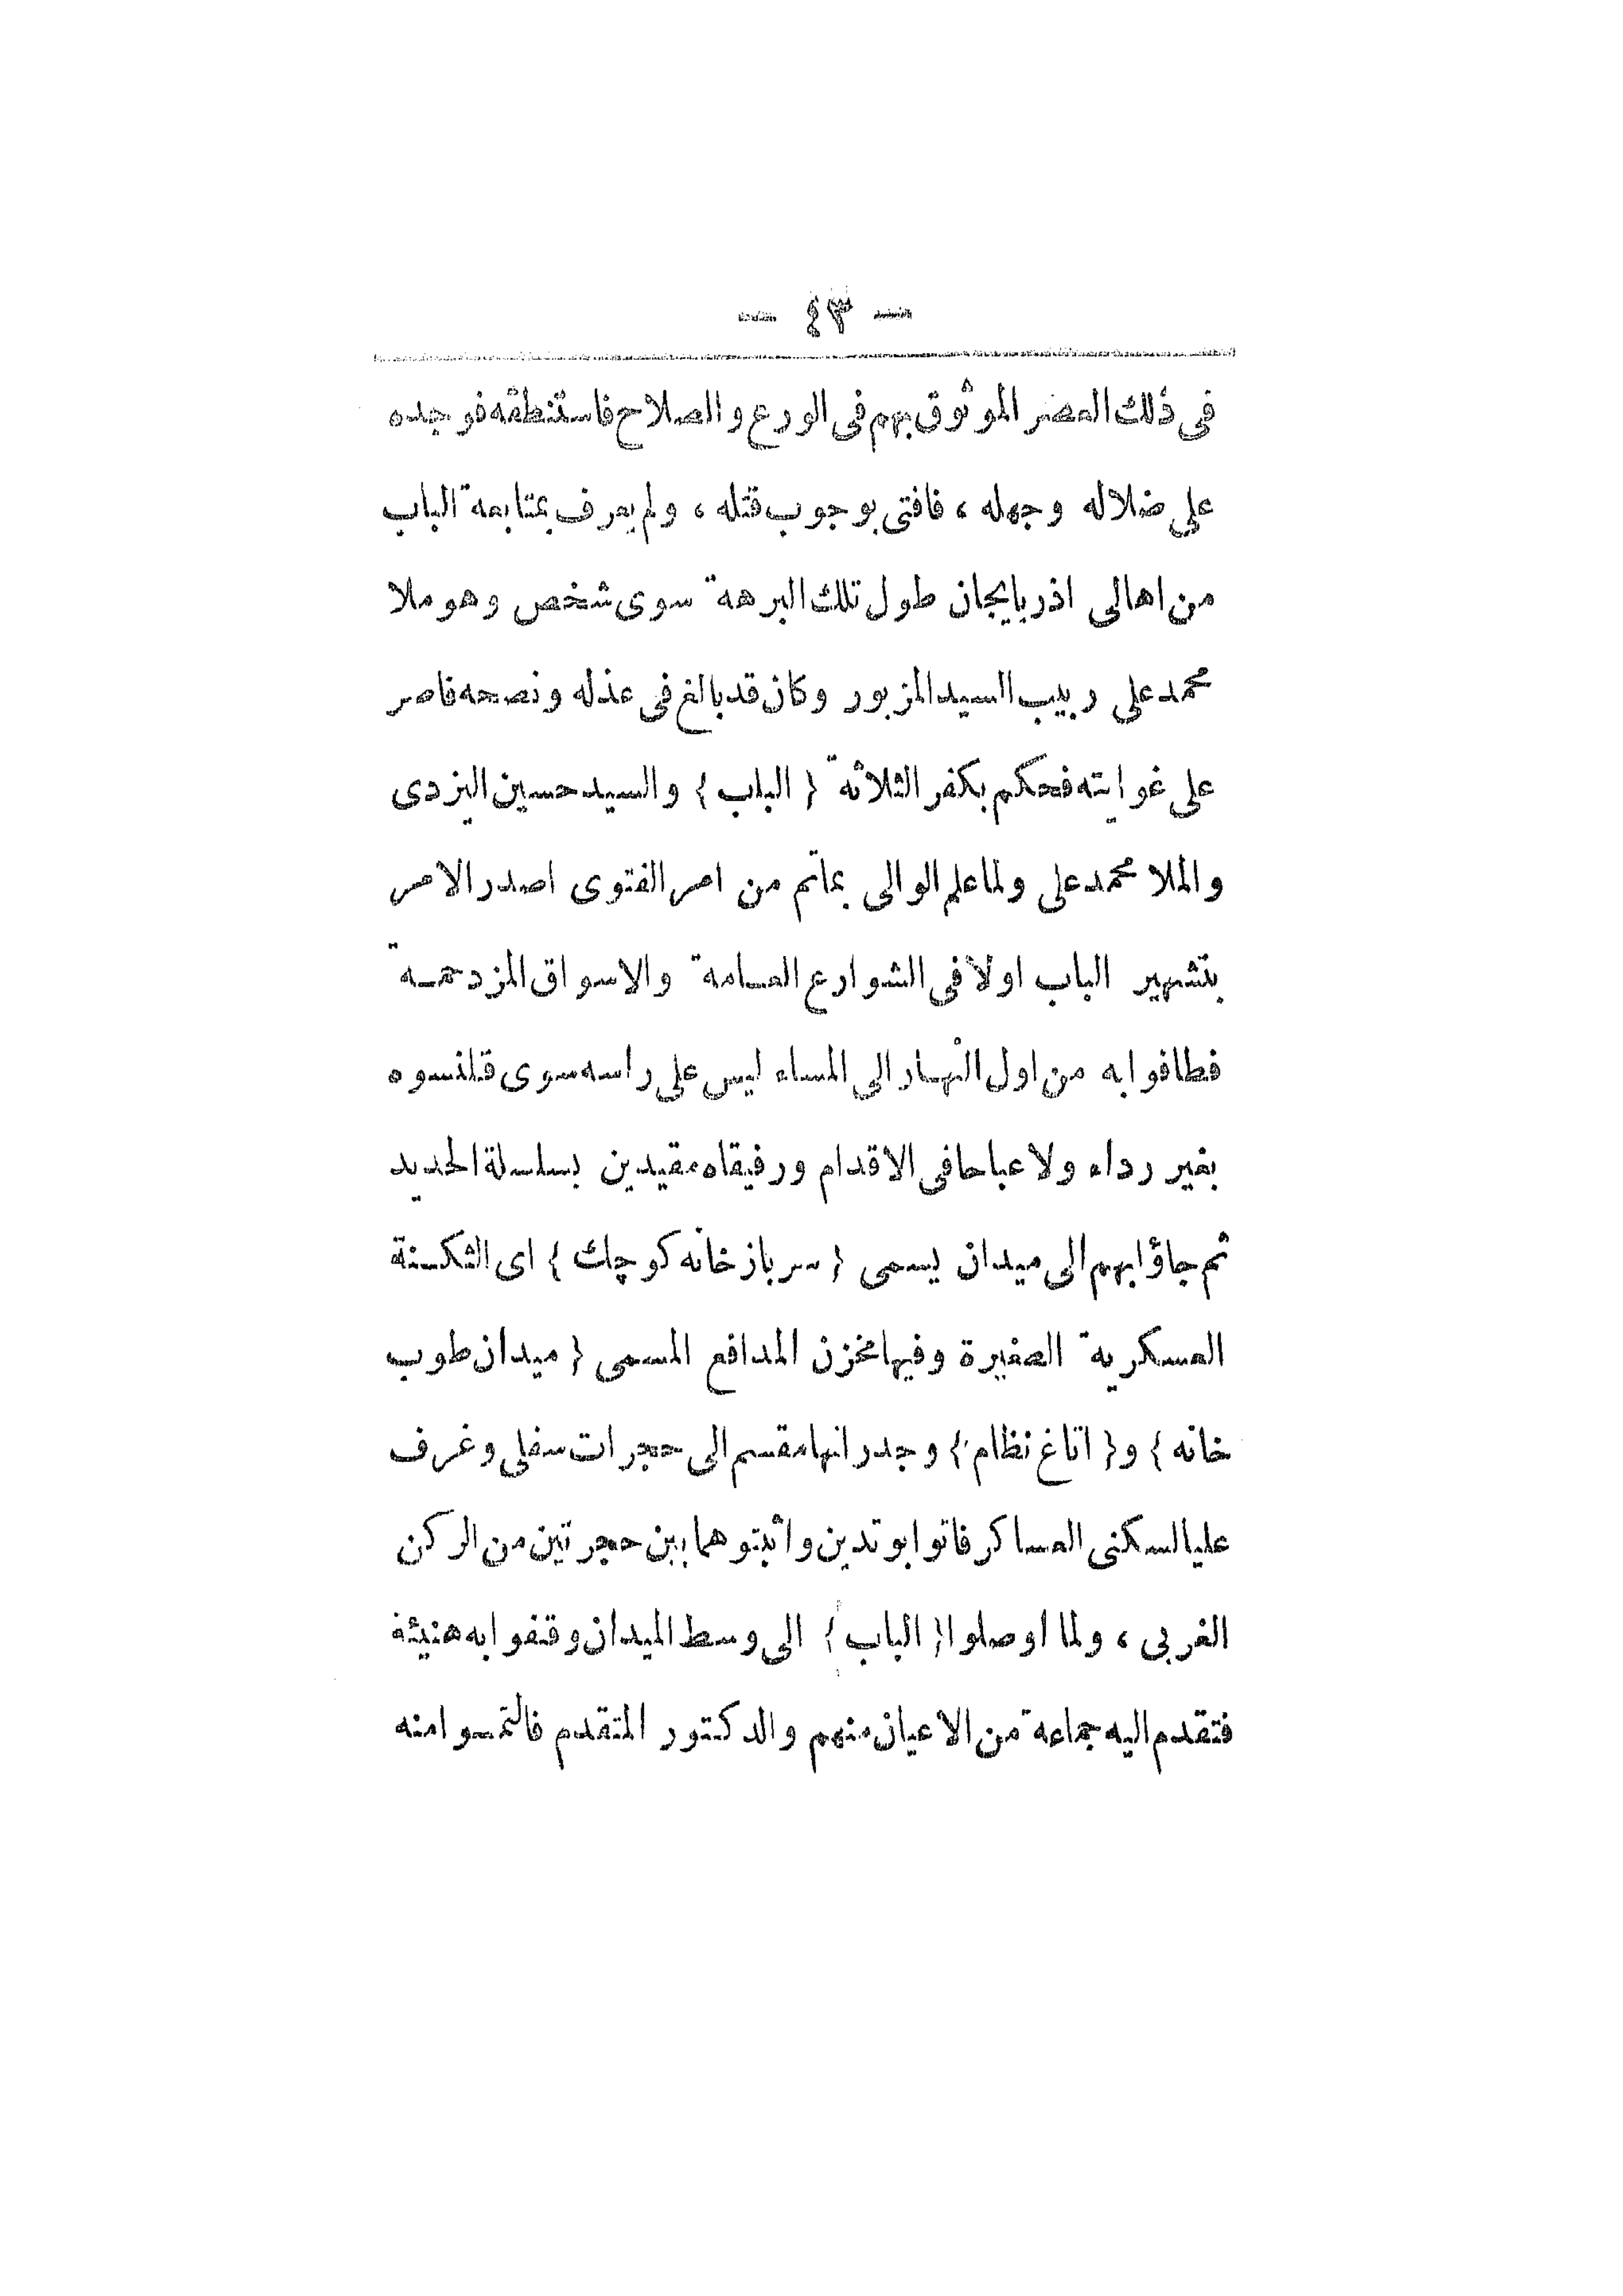 — ٤٣ —
فى ذلك العصر الموثوق بهم فى الورع والصلاح فاستنطقه فوجده
على ضلاله وجهله ، فافتى بوجوب قتله ، ولم يعرف بمتابعة الباب
من اهالى اذربايجان طول تلك البرهة سوى شخص وهو ملا
محمد على ربيب السيد المزبور وكان قد بالغ فى عذله ونصحه فاصر
على غوايته فحكم بكفر الثلاثة { الباب } والسيد حسين اليزدى
والملا محمد على ولما علم الوالى بما تم من امر الفتوى اصدر الامر
بتشهير الباب اولا فى الشوارع العامة والاسواق المزدحمة
فطافوا به من اول النهار الى المساء ليس على راسه سوى قلنسوه
بغير رداء ولا عبا حافى الاقدام ورفيقاه مقيدين بسلسلة الحديد
ثم جاؤا بهم الى ميدان يسمى { سرباز خانه كوچك } اى الثكنة
العسكرية الصغيرة وفيها مخزن المدافع المسمى { ميدان طوب
خانه } و { اتاغ نظام } وجدرانها مقسم الى حجرات سفلى وغرف
عليا لسكنى العساكر فاتوا بوتدين واثبتوهما بين حجرتين من الركن
الغربى ، ولما اوصلوا { الباب } الى وسط الميدان وقفوا به هنيئة
فتقدم اليه جماعة من الاعيان منهم والدكتور المتقدم فالتمسوا منه